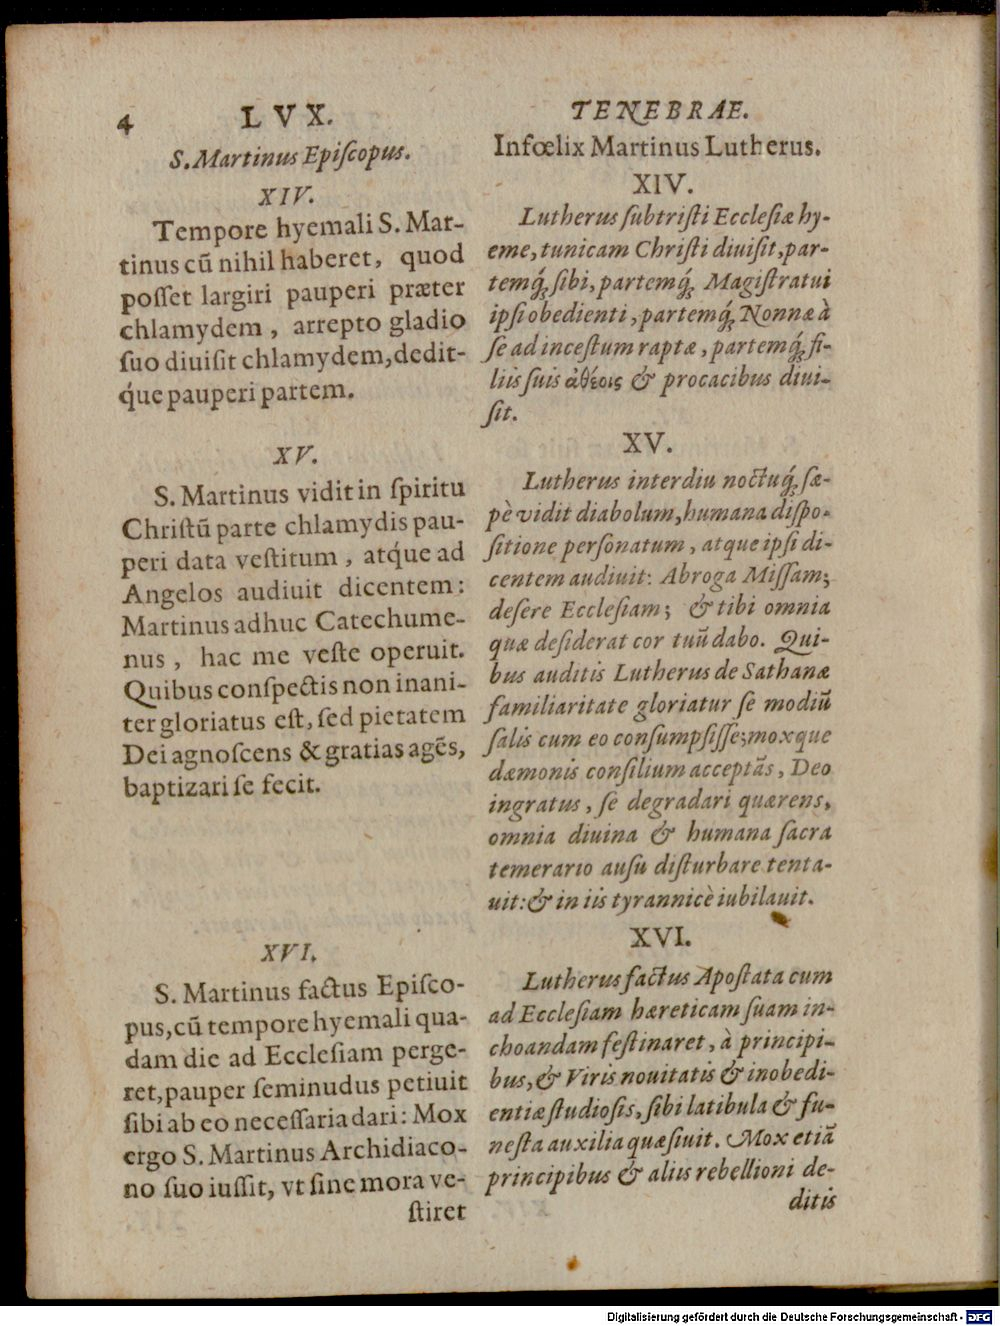 4 LVX.
S. Martinus Epiſcopus.
XIV.
Tempore hyemali S. Mar-
tinus cū nihil haberet, quod
poſſet largiri pauperi præter
chlamydem, arrepto gladio
ſuo diuiſit chlamydem, dedit-
q́ue pauperi partem.
XV.
S. Martinus vidit in ſpiritu
Chriſtū parte chlamydis pau-
peri data veſtitum, atq́ue ad
Angelos audiuit dicentem:
Martinus adhuc Catechume-
nus, hac me veſte operuit.
Quibus conſpectis non inani-
ter gloriatus eſt, ſed pietatem
Dei agnoſcens & gratias agēs,
baptizari ſe fecit.
XVI.
S. Martinus factus Epiſco-
pus, cū tempore hyemali qua-
dam die ad Eccleſiam perge-
ret, pauper ſeminudus petiuit
ſibi ab eo neceſſaria dari: Mox
ergo S. Martinus Archidiaco-
no ſuo iuſſit, vt ſine mora ve-
ſtiret
TENEBRAE.
Infœlix Martinus Lutherus.
XIV.
Lutherus ſubtriſti Eccleſiæ hy-
eme, tunicam Chriſti diuiſit, par-
temq́; ſibi, partemq́; Magiſtratui
ipſi obedienti, partemq́; Nonnæ à
ſe ad inceſtum raptæ, partemq́; fi-
liis ſuis ἀθέοις & procacibus diui-
ſit.
XV.
Lutherus interdiu noctuq́; ſæ-
pè vidit diabolum, humana diſpo-
ſitione perſonatum, atque ipſi di-
centem audiuit: Abroga Miſſam;
deſere Eccleſiam; & tibi omnia
quæ deſiderat cor tuū dabo. Qui-
bus auditis Lutherus de Sathanæ
familiaritate gloriatur ſe modiū
ſalis cum eo conſumpſiſſe; moxque
dæmonis conſilium acceptās, Deo
ingratus, ſe degradari quærens,
omnia diuina & humana ſacra
temerario auſu diſturbare tenta-
uit: & in iis tyrannicè iubilauit.
XVI.
Lutherus factus Apoſtata cum
ad Eccleſiam hæreticam ſuam in-
choandam feſtinaret, à principi-
bus, & Viris nouitatis & inobedi-
entiæ ſtudioſis, ſibi latibula & fu-
neſta auxilia quæſiuit. Mox etiā
principibus & aliis rebellioni de-
ditis
Digitalisierung gefördert durch die Deutsche Forschungsgemeinschaft - DFG